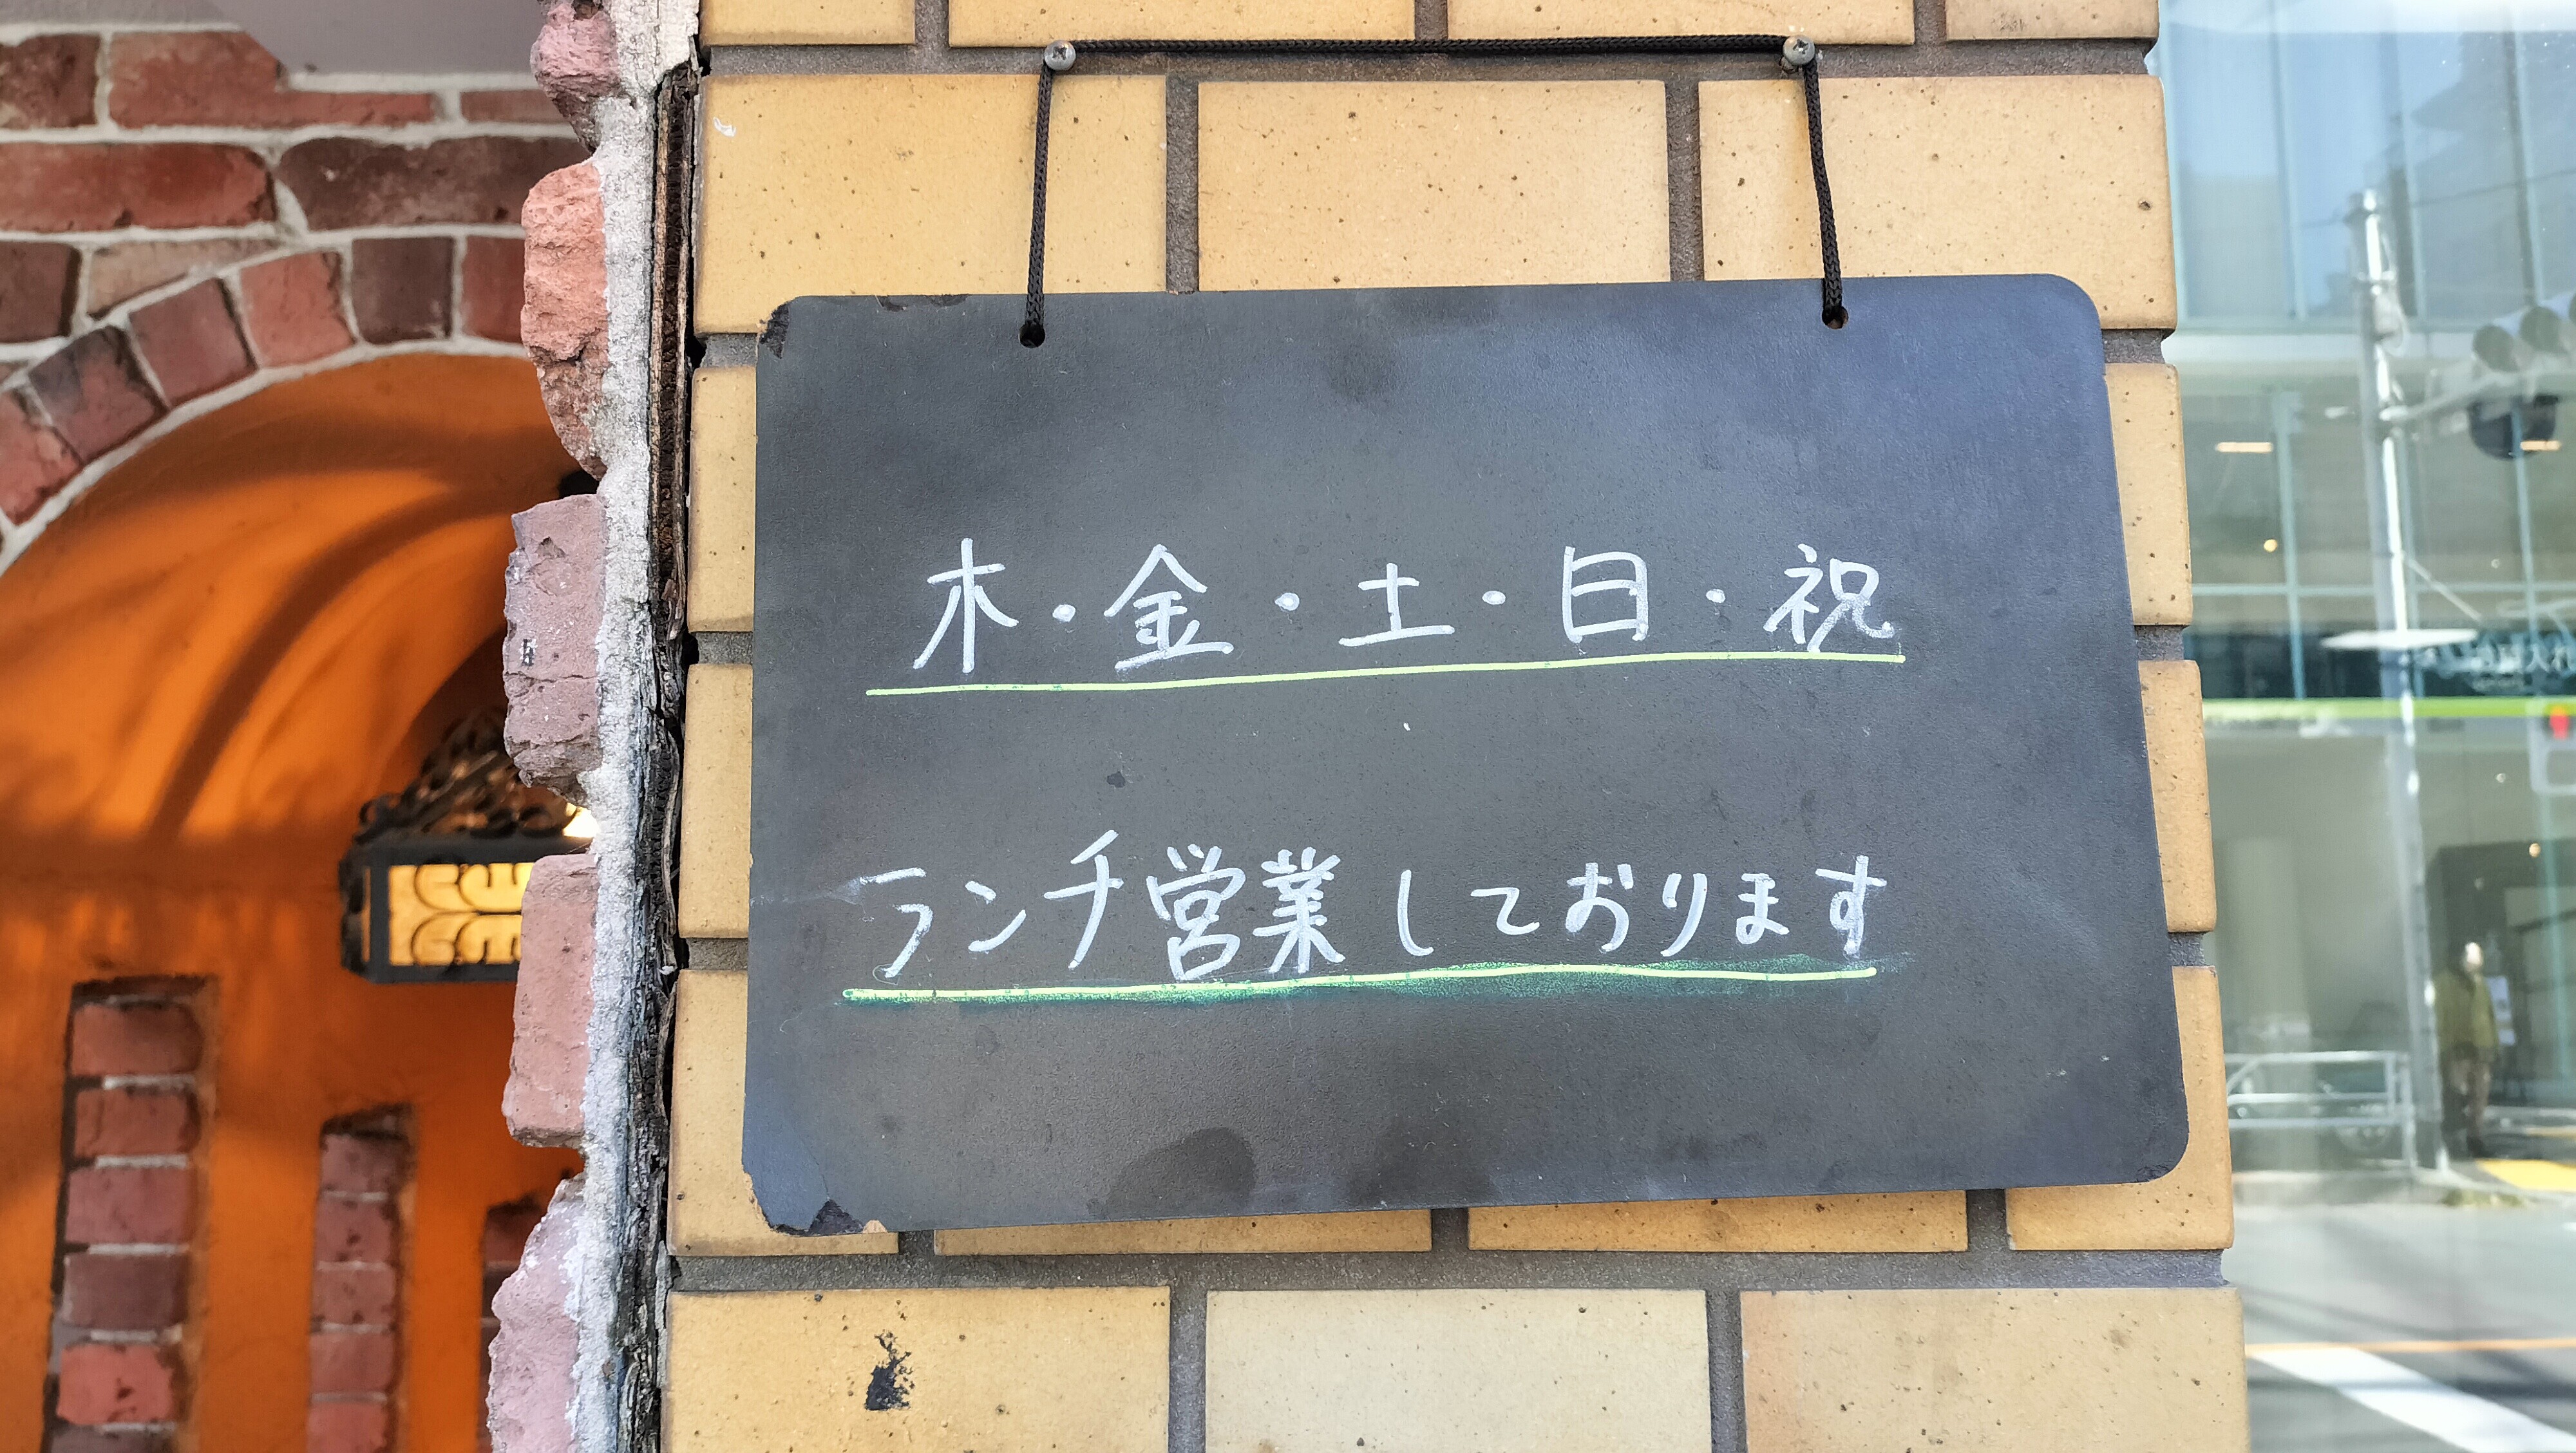 木・金・土・日・祝
ランチ営業しております